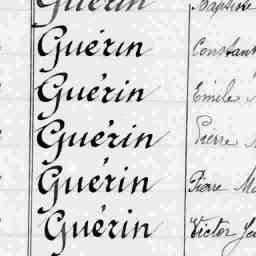 Guérin Baptiste
Guérin Constant
Guérin Emile
Guérin Pierre
Guérin Pierre
Guérin Victor